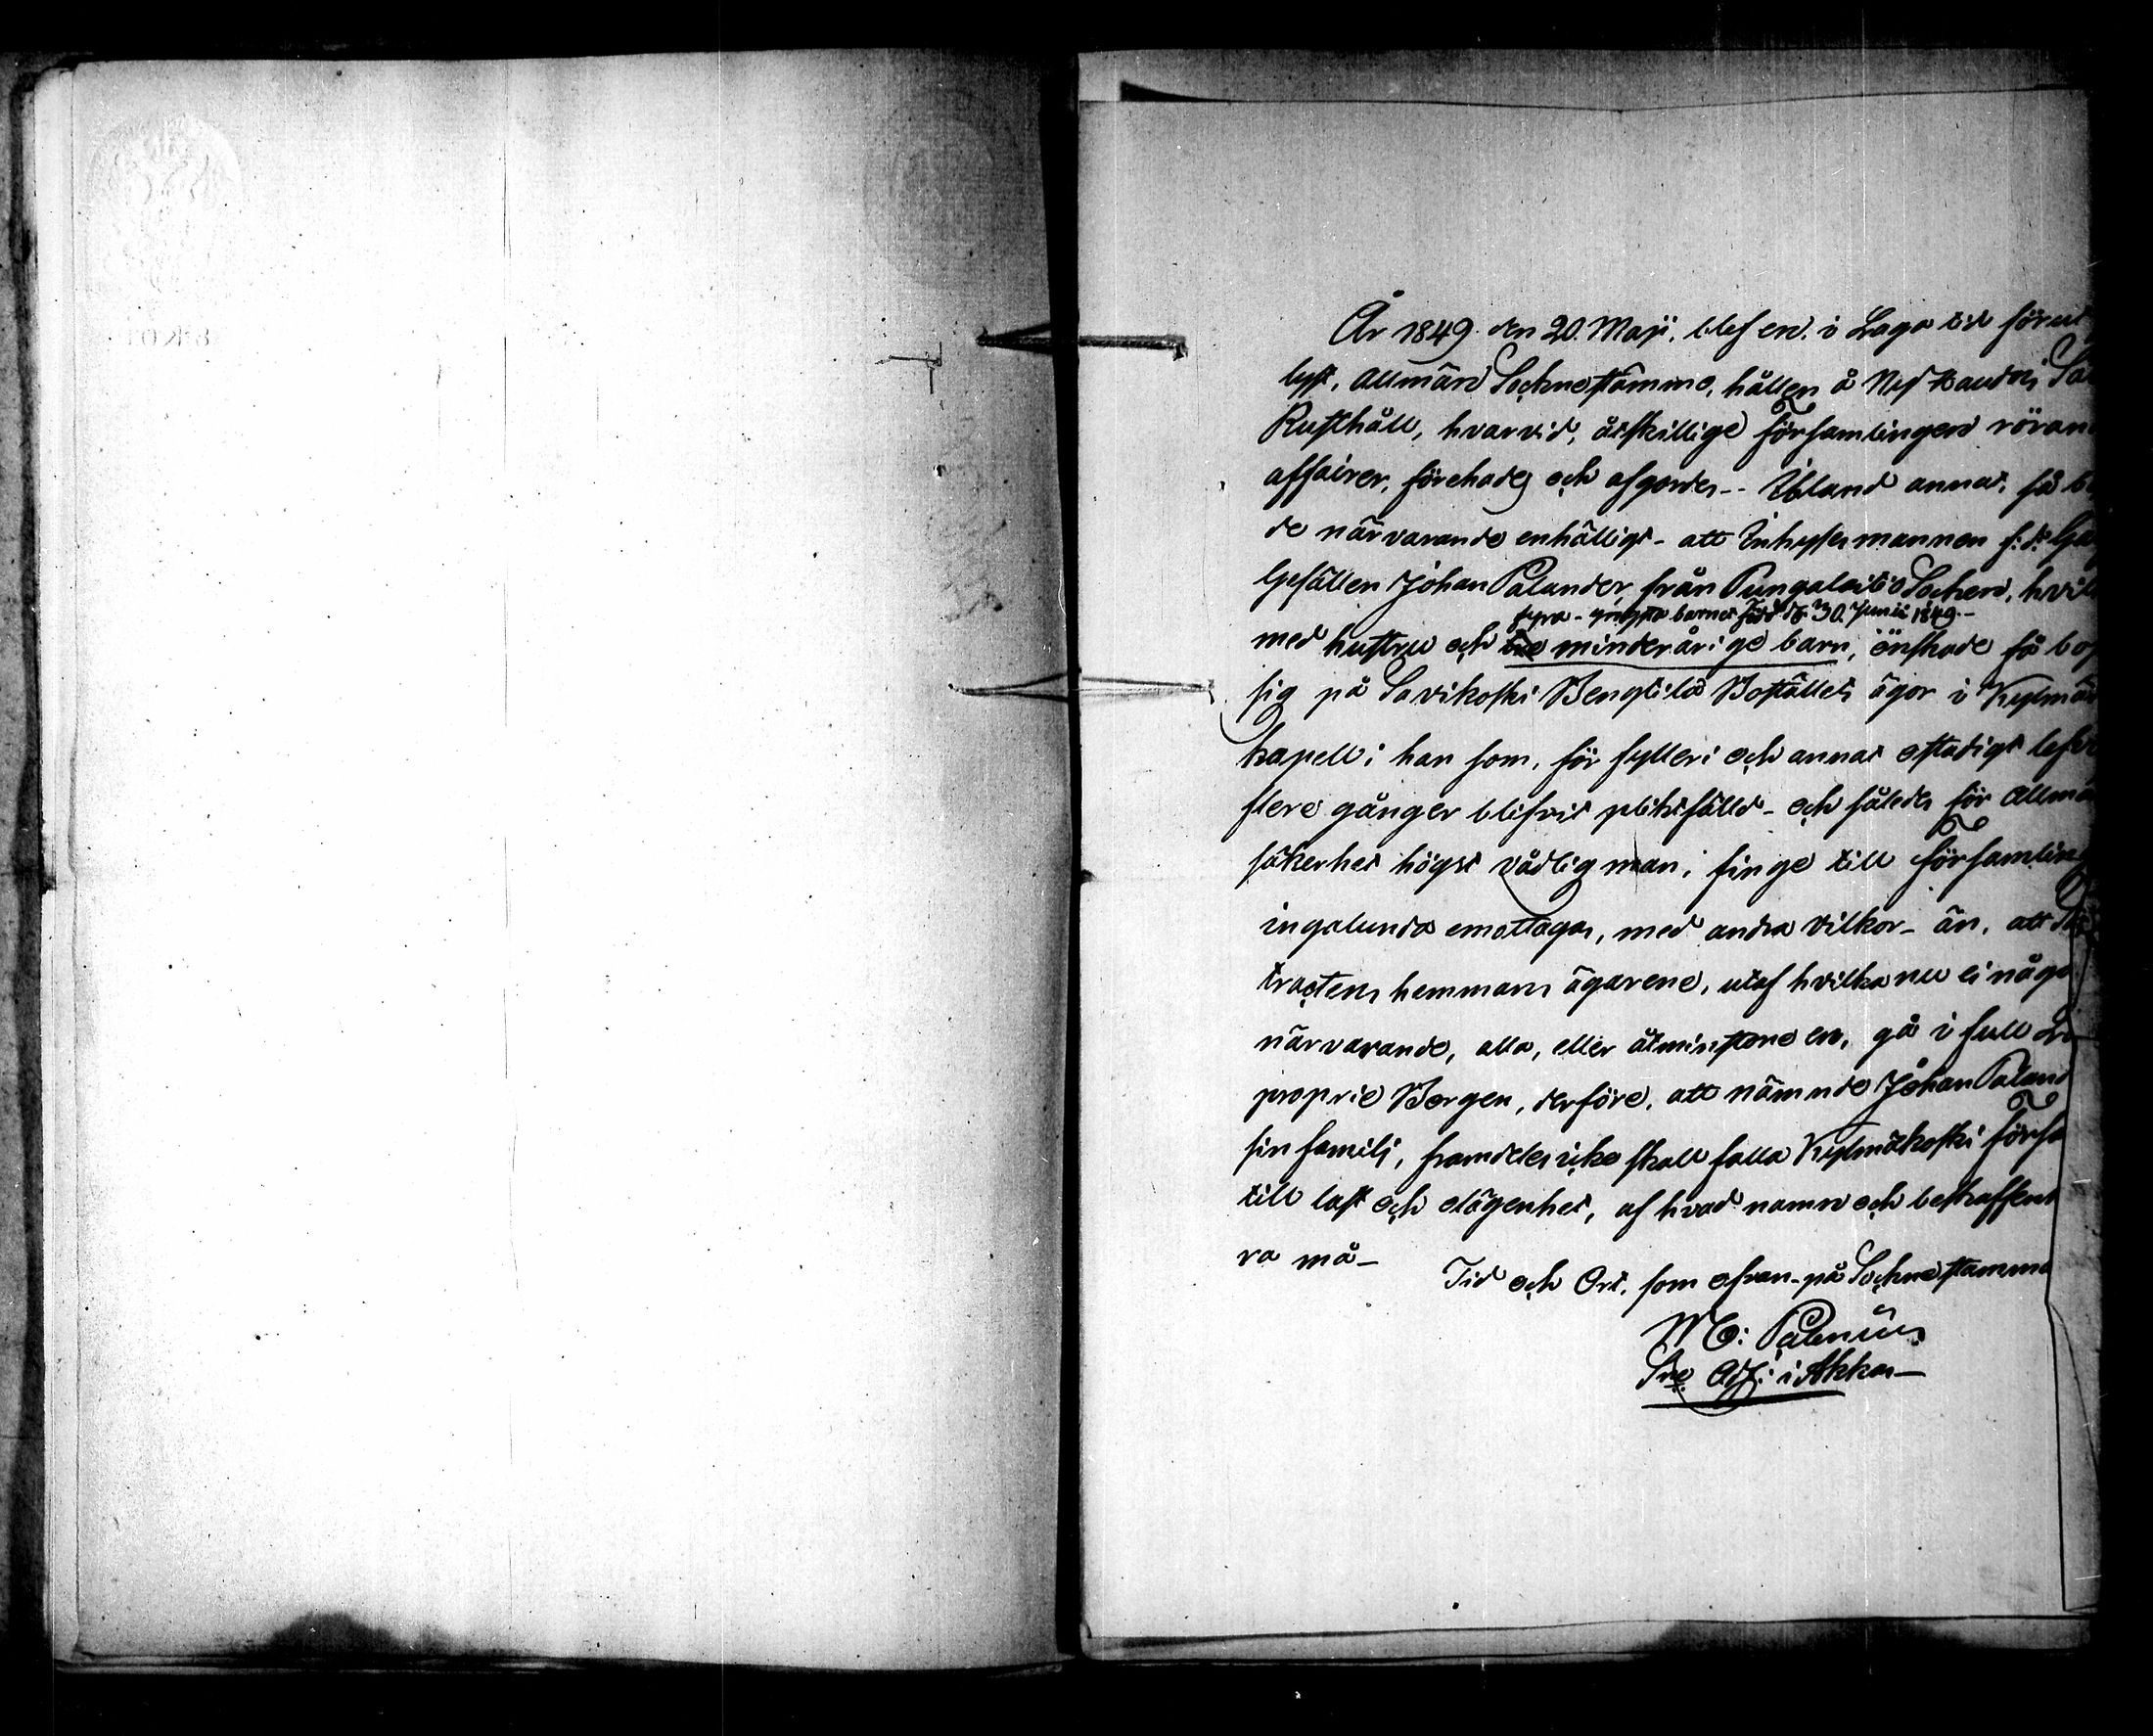 År 1849 den 20. Maji, blef en, i Laga tid förut
lyst, allmän Sockne stämma, hållen å Ned
Rusthåll, hvarvid, åtskillige Församlingen röran
affairer, förehades och afgordes -- Ibland annat, så
de närvarande enhälligt - att Inhysesmannen f:d:
Gesällen Johan Palander, från Pungalaitio Socken, hvil
fyra - yngsta barnet född d. 30. Junii 1849 -
med hustru och tre minderårige barn, önskade få bo
sig på Savikoski Bengtilä Boställets ägor i Kylmä
kapell; han som, för fylleri och annat ostadigt lef
flere gånger blifvit pliktfälld - och således för Allmän
säkerhet högst vådlig man; finge till Församling
ingalunda emottagas, med andra vilkor - än, att
tractens hemmans ägarene, utaf hvilka nu ei någo
närvarande, alla, eller åtminstone en, gå i full
proprie Borgen, derföre, att nämnde Johan Paland
sin familj, framdeles icke skall falla Kylmäkoski Förs
till last och olägenhet, af hvad namn och beskaffen
ra må -
Tid och Ort, som ofvan - på Sockne stämma
M E: Palenius
i Akkas -